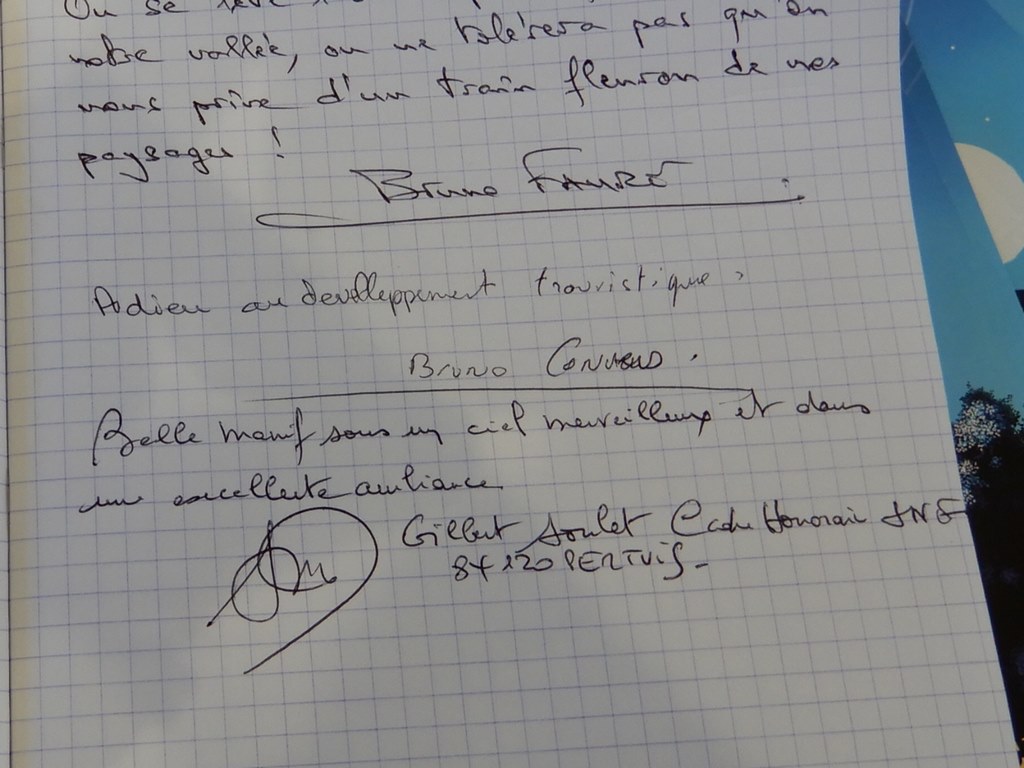 On se
notre vallée, on ne tolèrera pas qu'on
nous prive d'un train fleuron de nos
paysages !
Bruno FAURE
Adieu au develleppement touristique
Bruno
Belle manif sous un ciel merveilleux et dans
une excellente ambiance
Gilbert Soulet Cadre Honoraire SNCF
84120 PERTUIS-